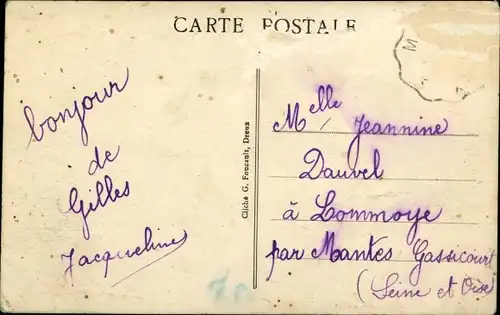 CARTE POSTALE
M
bonjour
de
Gilles
Jacqueline
Cliché G. Foucault, Dreux
Melle Jeannine
Dauvel
à Lommoye
par Mantes Gassicourt
(Seine et Oise)